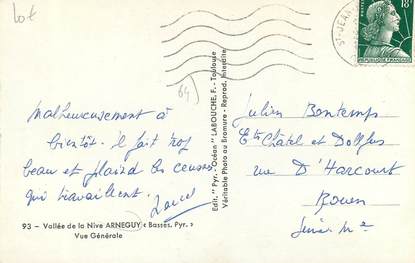 Lot
ST-JEAN
18F
POSTES
REPUBLIQUE FRANCAISE
64
Malheureusement à
bientôt. il fait trop
beau et plaind les
qui travaillent.
93 - Vallée de la Nive ARNEGUY « Basses. Pyr. »
Vue Générale
Edit. "Pyr.-Océan" LABOUCHE, F. - Toulouse
Véritable Photo au Bromure - Reprod. Interdite
Julien Bontemps
Ets Châtel et Dollfus
rue D'Harcourt
Rouen
Seine Mme